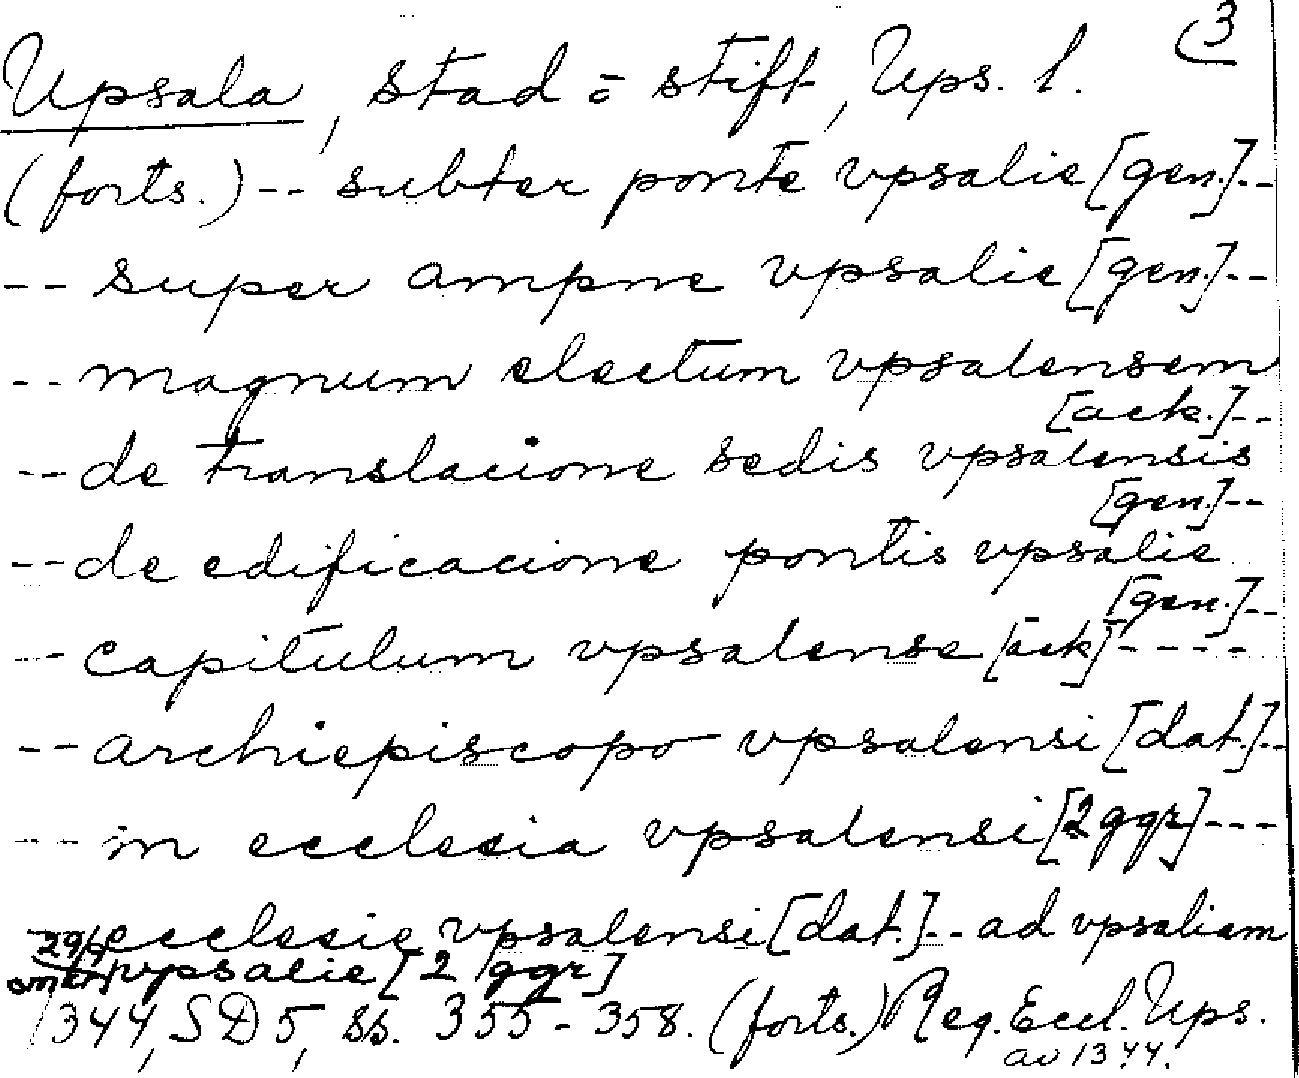 (3
Upsala, stad o stift, Ups. l.
(forts.) -- subter ponte vpsalie [gen.]--
-- super ampne vpsalie [gen.]--
-- magnum electum vpsalensem
[ack.]--
-- de translacione sedis vpsalensis
[gen.]--
-- de edificacione pontis vpsalie
[gen.]--
-- capitulum vpsalense [ack] ----
-- archiepiscopo vpsalensi [dat.]--
-- in ecclesia vpsalensi [2 ggr] ---
ecclesie vpsalensi [dat.]-- ad vpsaliam
vpsalie [2 ggr]
1344, SD 5, ss. 355-358. (forts.) Reg. Eccl. Ups.
av 1344.